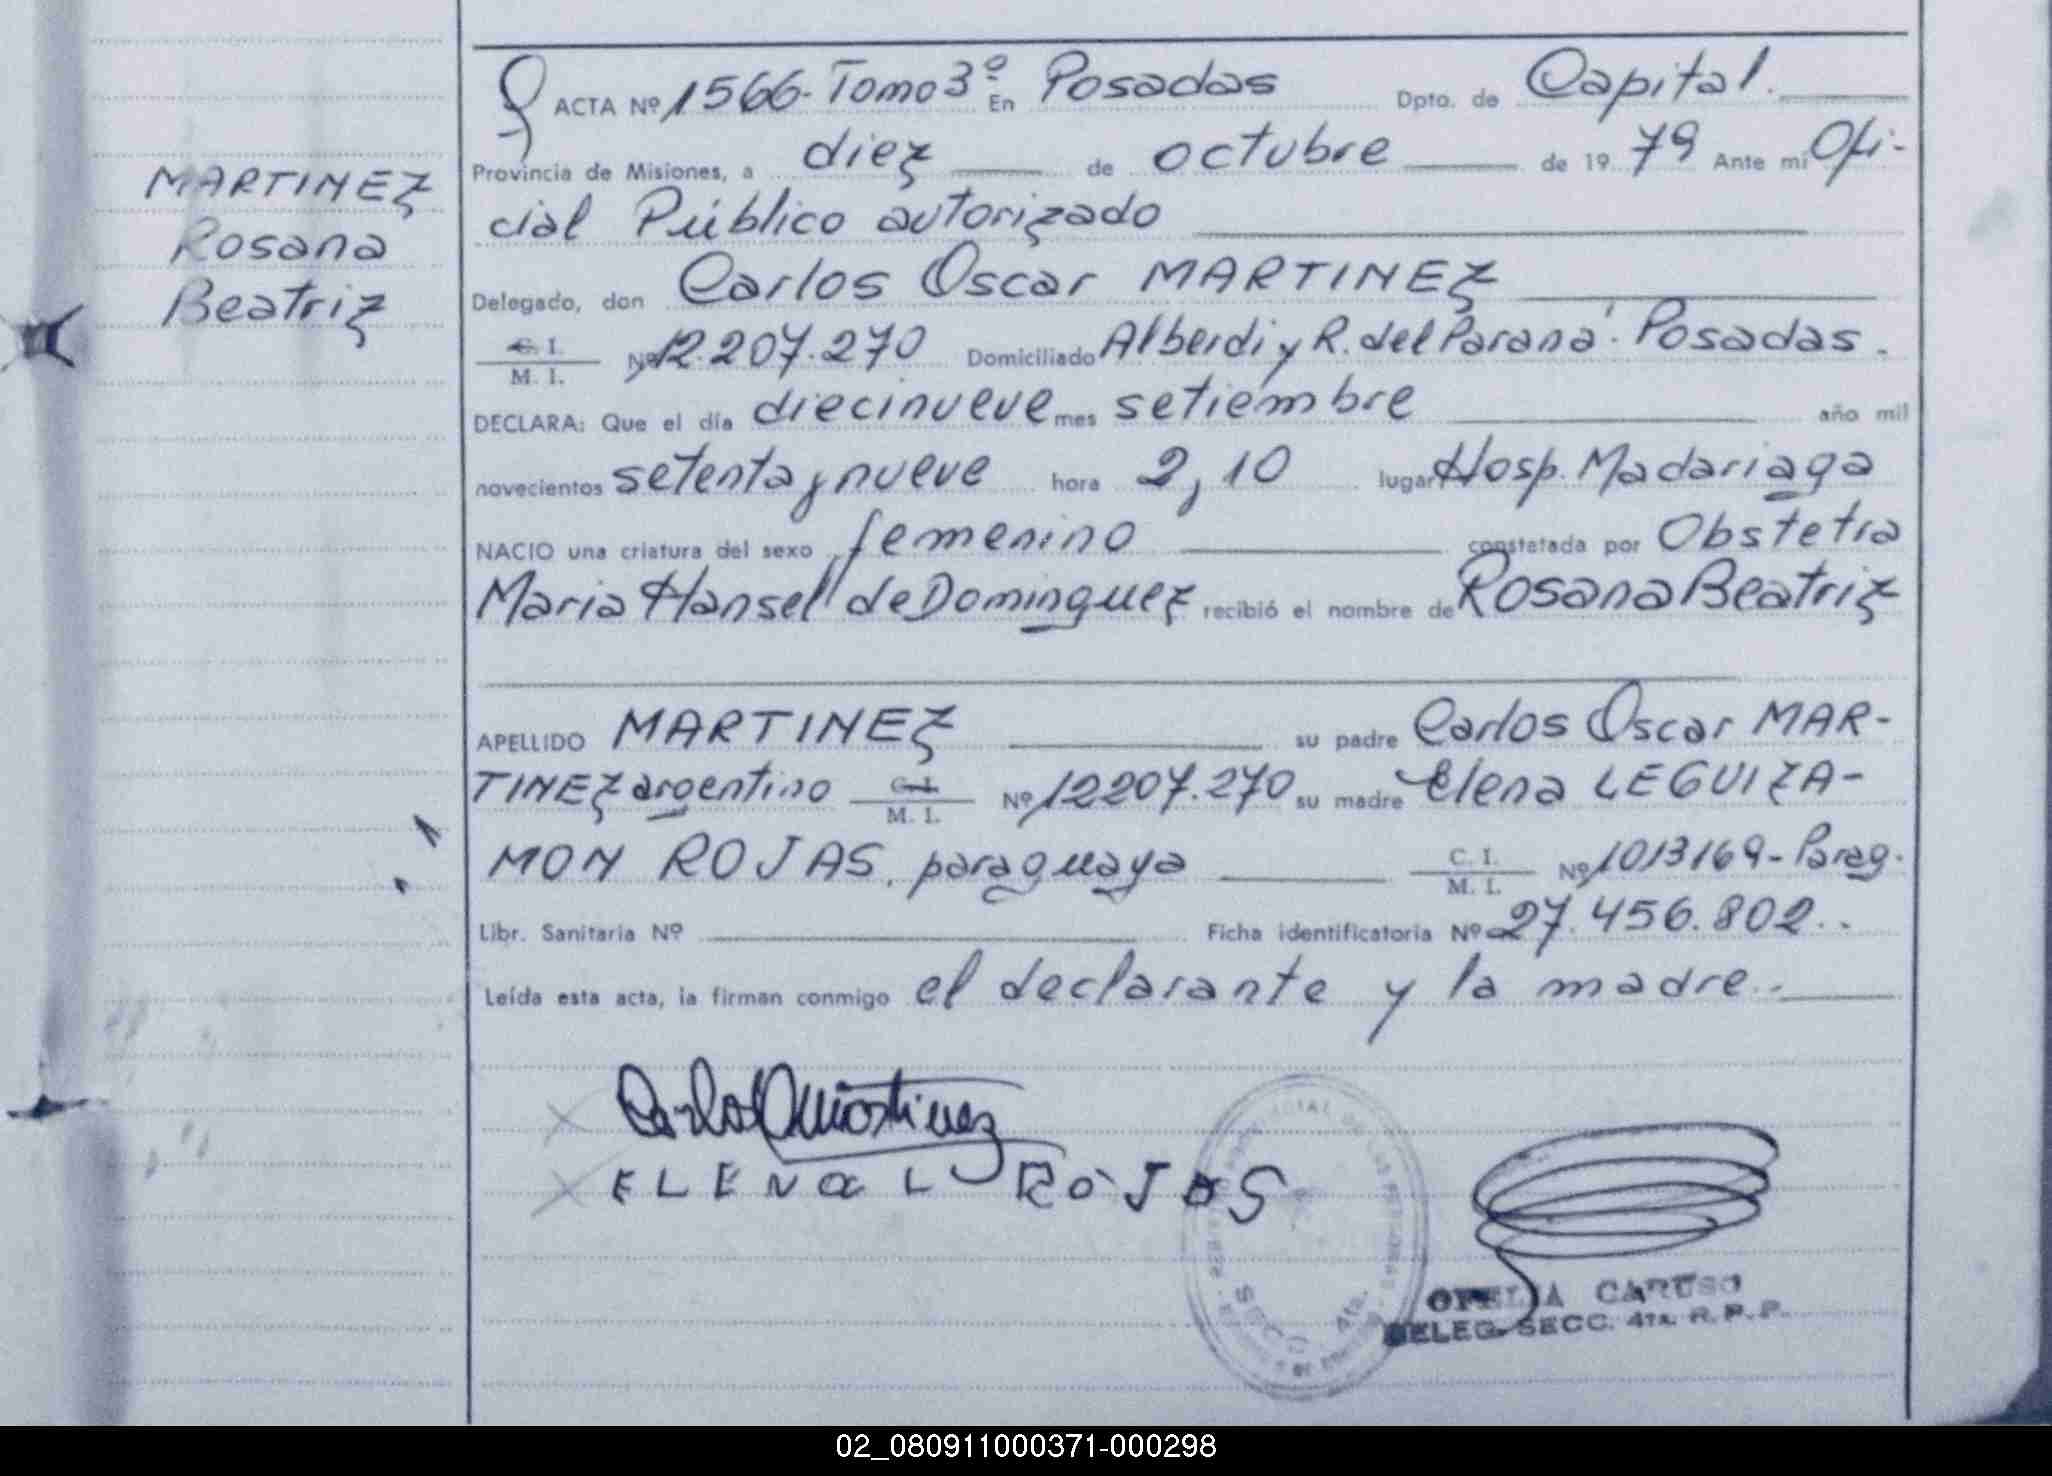 MARTINEZ
Rosana
Beatriz
ACTA Nº 1566. Tomo 3º En Posadas Dpto. de Capital.
Provincia de Misiones, a diez de octubre de 19 79 Ante mi Ofi-
cial Público autorizado
Delegado, don Carlos Oscar MARTINEZ
C. I.
M. I. Nº 12.207.270 Domiciliado Alberdi y R. del Paraná. Posadas.
DECLARA: Que el día diecinueve mes setiembre año mil
novecientos setenta y nueve hora 2,10 lugar Hosp. Madariaga
NACIO una criatura del sexo femenino constatada por Obstetra
Maria Hansel de Dominguez recibió el nombre de Rosana Beatriz
APELLIDO MARTINEZ su padre Carlos Oscar MAR-
TINEZ argentino C. I. M. I. Nº 12207.270 su madre Elena LEGUIZA-
MON ROJAS, paraguaya C. I. M. I. Nº 1013169- Parag.
Libr. Sanitaria Nº Ficha identificatoria Nº 27.456.802..
Leída esta acta, la firman conmigo el declarante y la madre..
Carlos O Martinez
ELENA L ROJAS
SECC. 4ta.
OFELIA CARUSO
DELEG. SECC. 4TA. R. P. P.
02_080911000371-000298